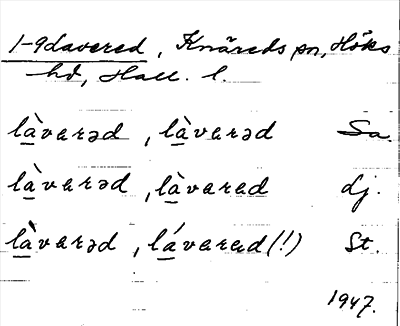 1-9davered, Knäreds sn, Höks
hd, Hall. l.
là̱varəd, là̱varəd Sa.
là̱varəd, là̱varad dj.
là̱varəd, lá̱varad (!) St.
1947.